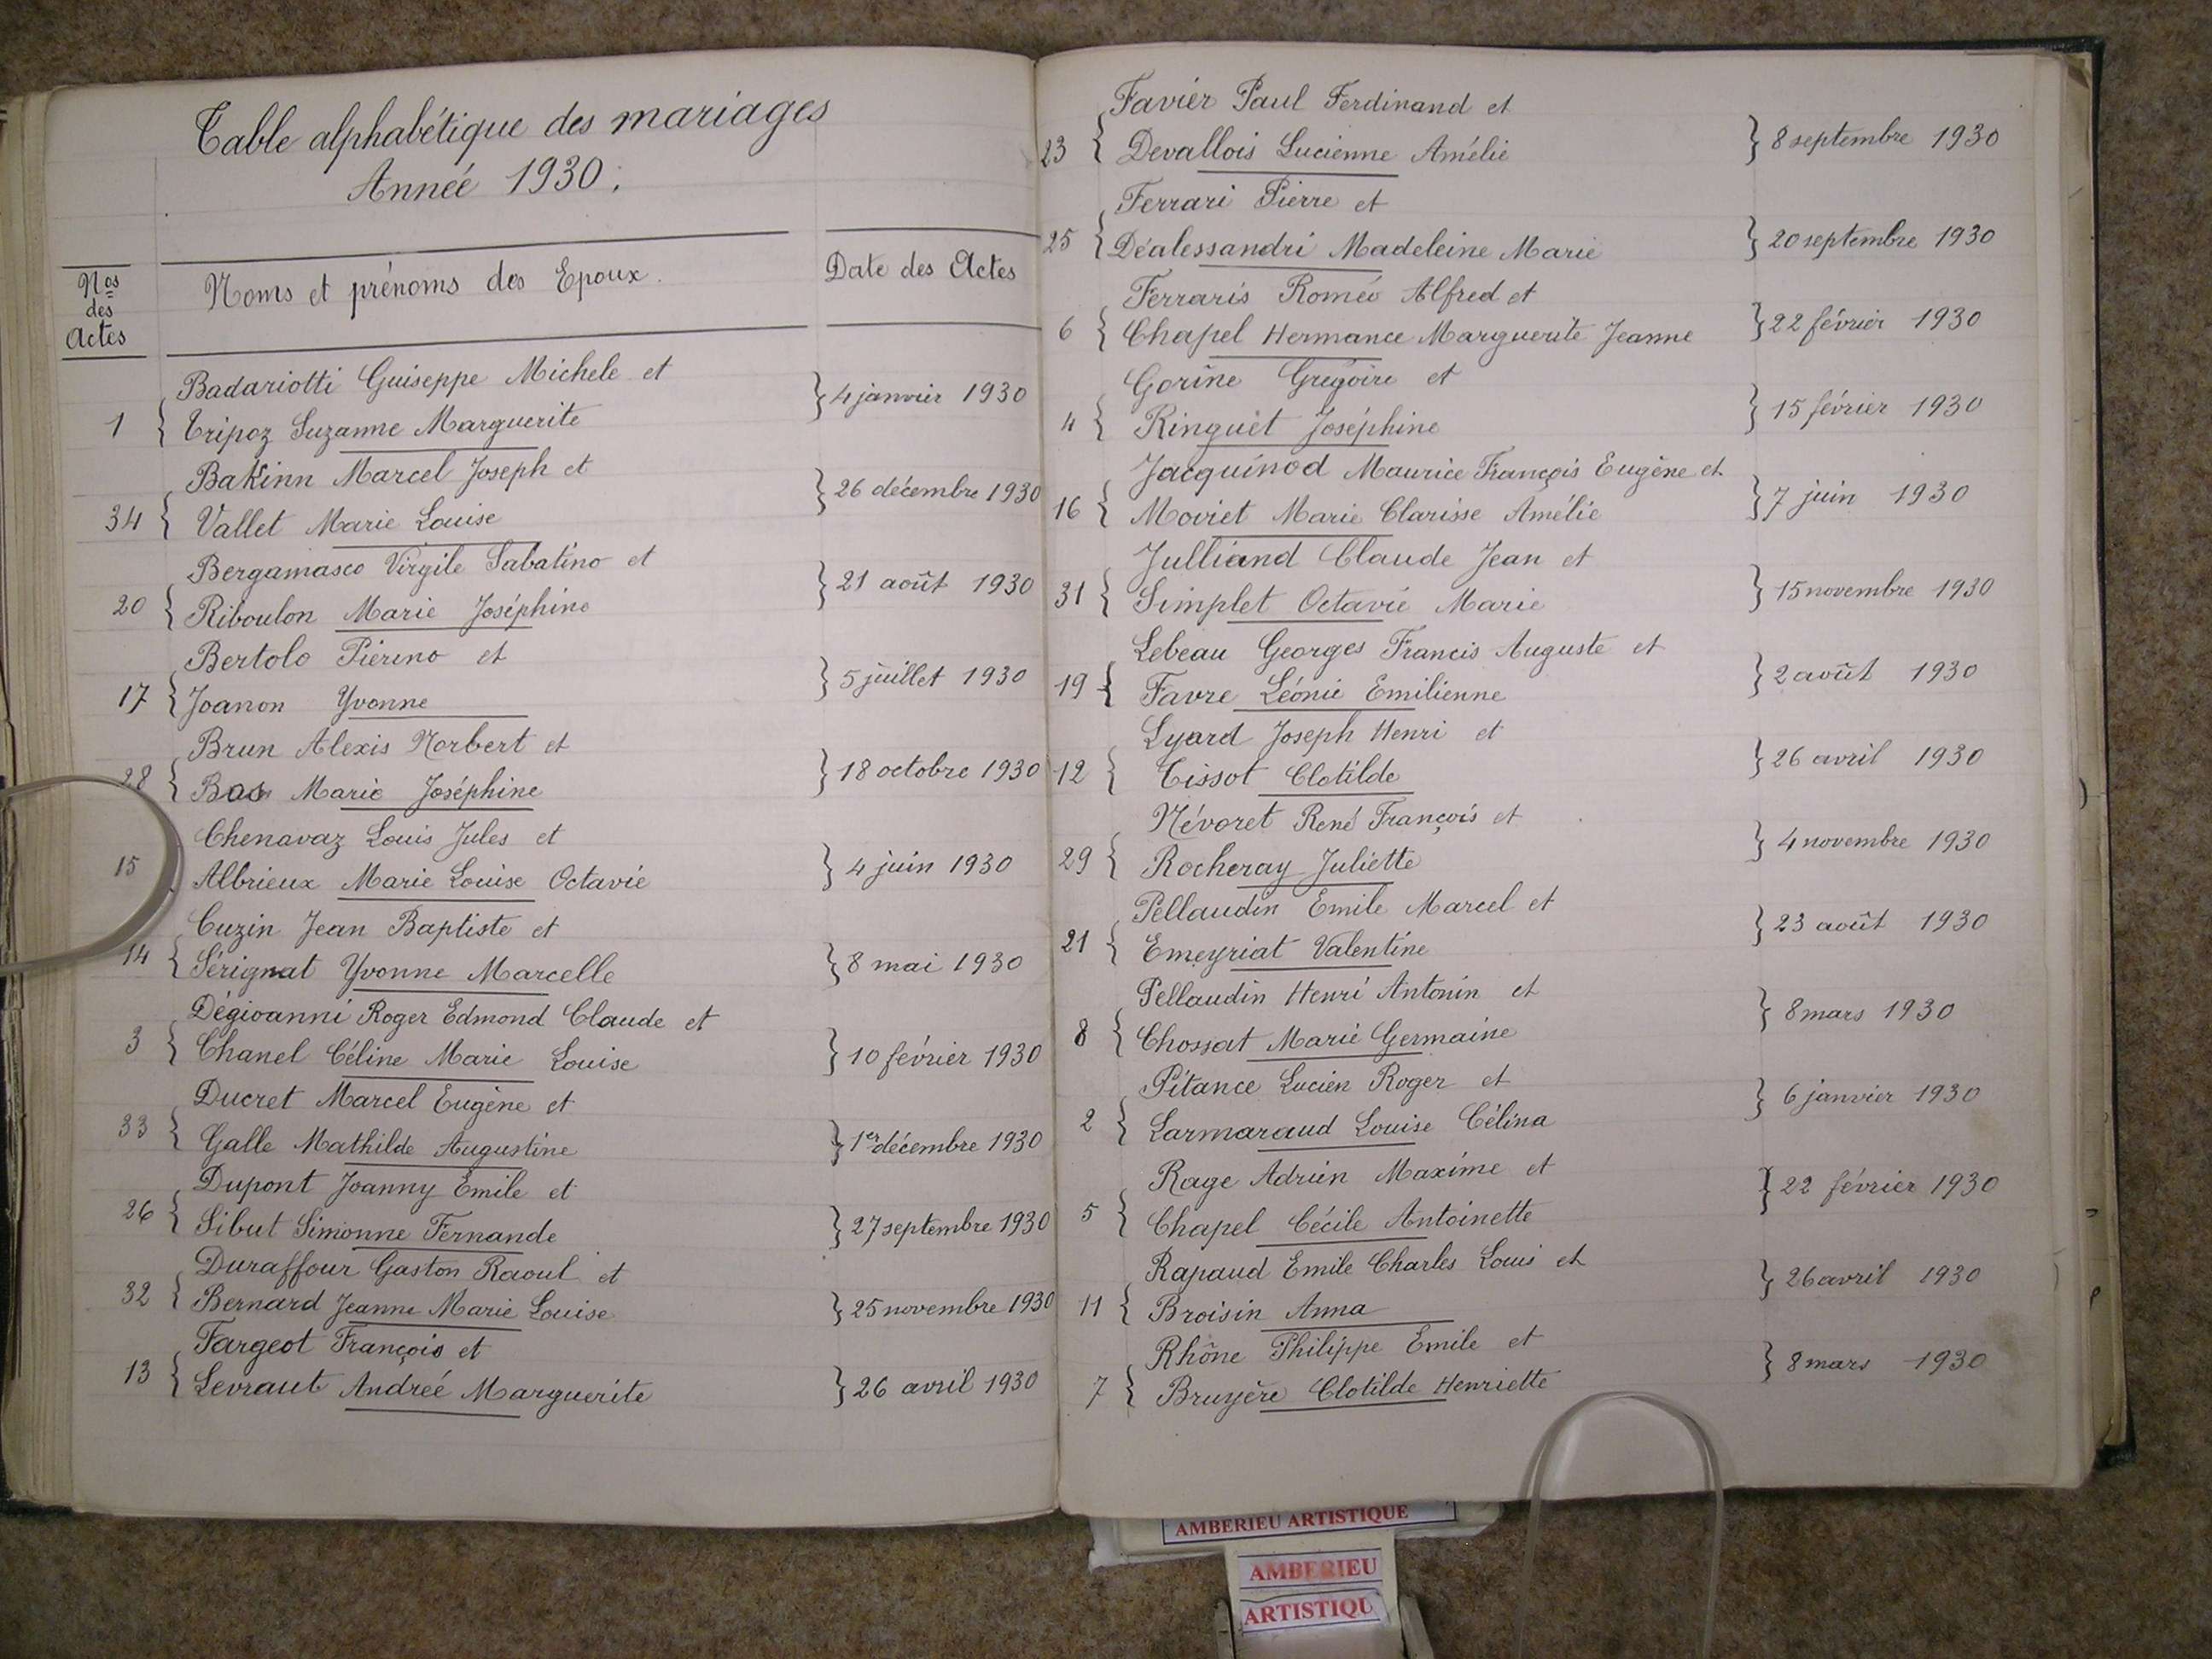 Table alphabétique des mariages
Année 1930.
Nos
des
Actes
Noms et prénoms des Epoux.
Date des Actes
Badariotti Guiseppe Michele et
1 { Tripoz Suzanne Marguerite } 4 janvier 1930
Bakinn Marcel Joseph et
34 { Vallet Marie Louise } 26 décembre 1930
Bergamasco Virgile Sabatino et
20 { Riboulon Marie Joséphine } 21 août 1930
Bertolo Pierino et
17 { Joanon Yvonne } 5 juillet 1930
Brun Alexis Norbert et
28 { Bas Marie Joséphine } 18 octobre 1930
Chenavaz Louis Jules et
15 { Albrieux Marie Louise Octavie } 4 juin 1930
Cuzin Jean Baptiste et
14 { Sérignat Yvonne Marcelle } 8 mai 1930
Dégioanni Roger Edmond Claude et
3 { Chanel Céline Marie Louise } 10 février 1930
Ducret Marcel Eugène et
33 { Galle Mathilde Augustine } 1er décembre 1930
Dupont Joanny Emile et
26 { Sibut Simonne Fernande } 27 septembre 1930
Duraffour Gaston Raoul et
32 { Bernard Jeanne Marie Louise } 25 novembre 1930
Fargeot François et
13 { Levraut Andreé Marguerite } 26 avril 1930
Favier Paul Ferdinand et
23 { Devallois Lucienne Amélie } 8 septembre 1930
Ferrari Pierre et
25 { Déalessandri Madeleine Marie } 20 septembre 1930
Ferraris Roméo Alfred et
6 { Chapel Hermance Marguerite Jeanne } 22 février 1930
Gorine Grégoire et
4 { Ringuet Joséphine } 15 février 1930
Jacquinod Maurice François Eugène et
16 { Moviet Marie Clarisse Amélie } 7 juin 1930
Julliand Claude Jean et
31 { Simplet Octavie Marie } 15 novembre 1930
Lebeau Georges Francis Auguste et
19 { Favre Léonie Emilienne } 2 août 1930
Lyard Joseph Henri et
12 { Tissot Clotilde } 26 avril 1930
Névoret René François et
29 { Rocheray Juliette } 4 novembre 1930
Pellaudin Emile Marcel et
21 { Emeyriat Valentine } 23 août 1930
Pellaudin Henri Antonin et
8 { Chossat Marie Germaine } 8 mars 1930
Pitance Lucien Roger et
2 { Larmaraud Louise Célina } 6 janvier 1930
Rage Adrien Maxime et
5 { Chapel Cécile Antoinette } 22 février 1930
Rapaud Emile Charles Louis et
11 { Broisin Anna } 26 avril 1930
Rhône Philippe Emile et
7 { Bruyère Clotilde Henriette } 8 mars 1930
AMBERIEU ARTISTIQUE
AMBERIEU
ARTISTIQU